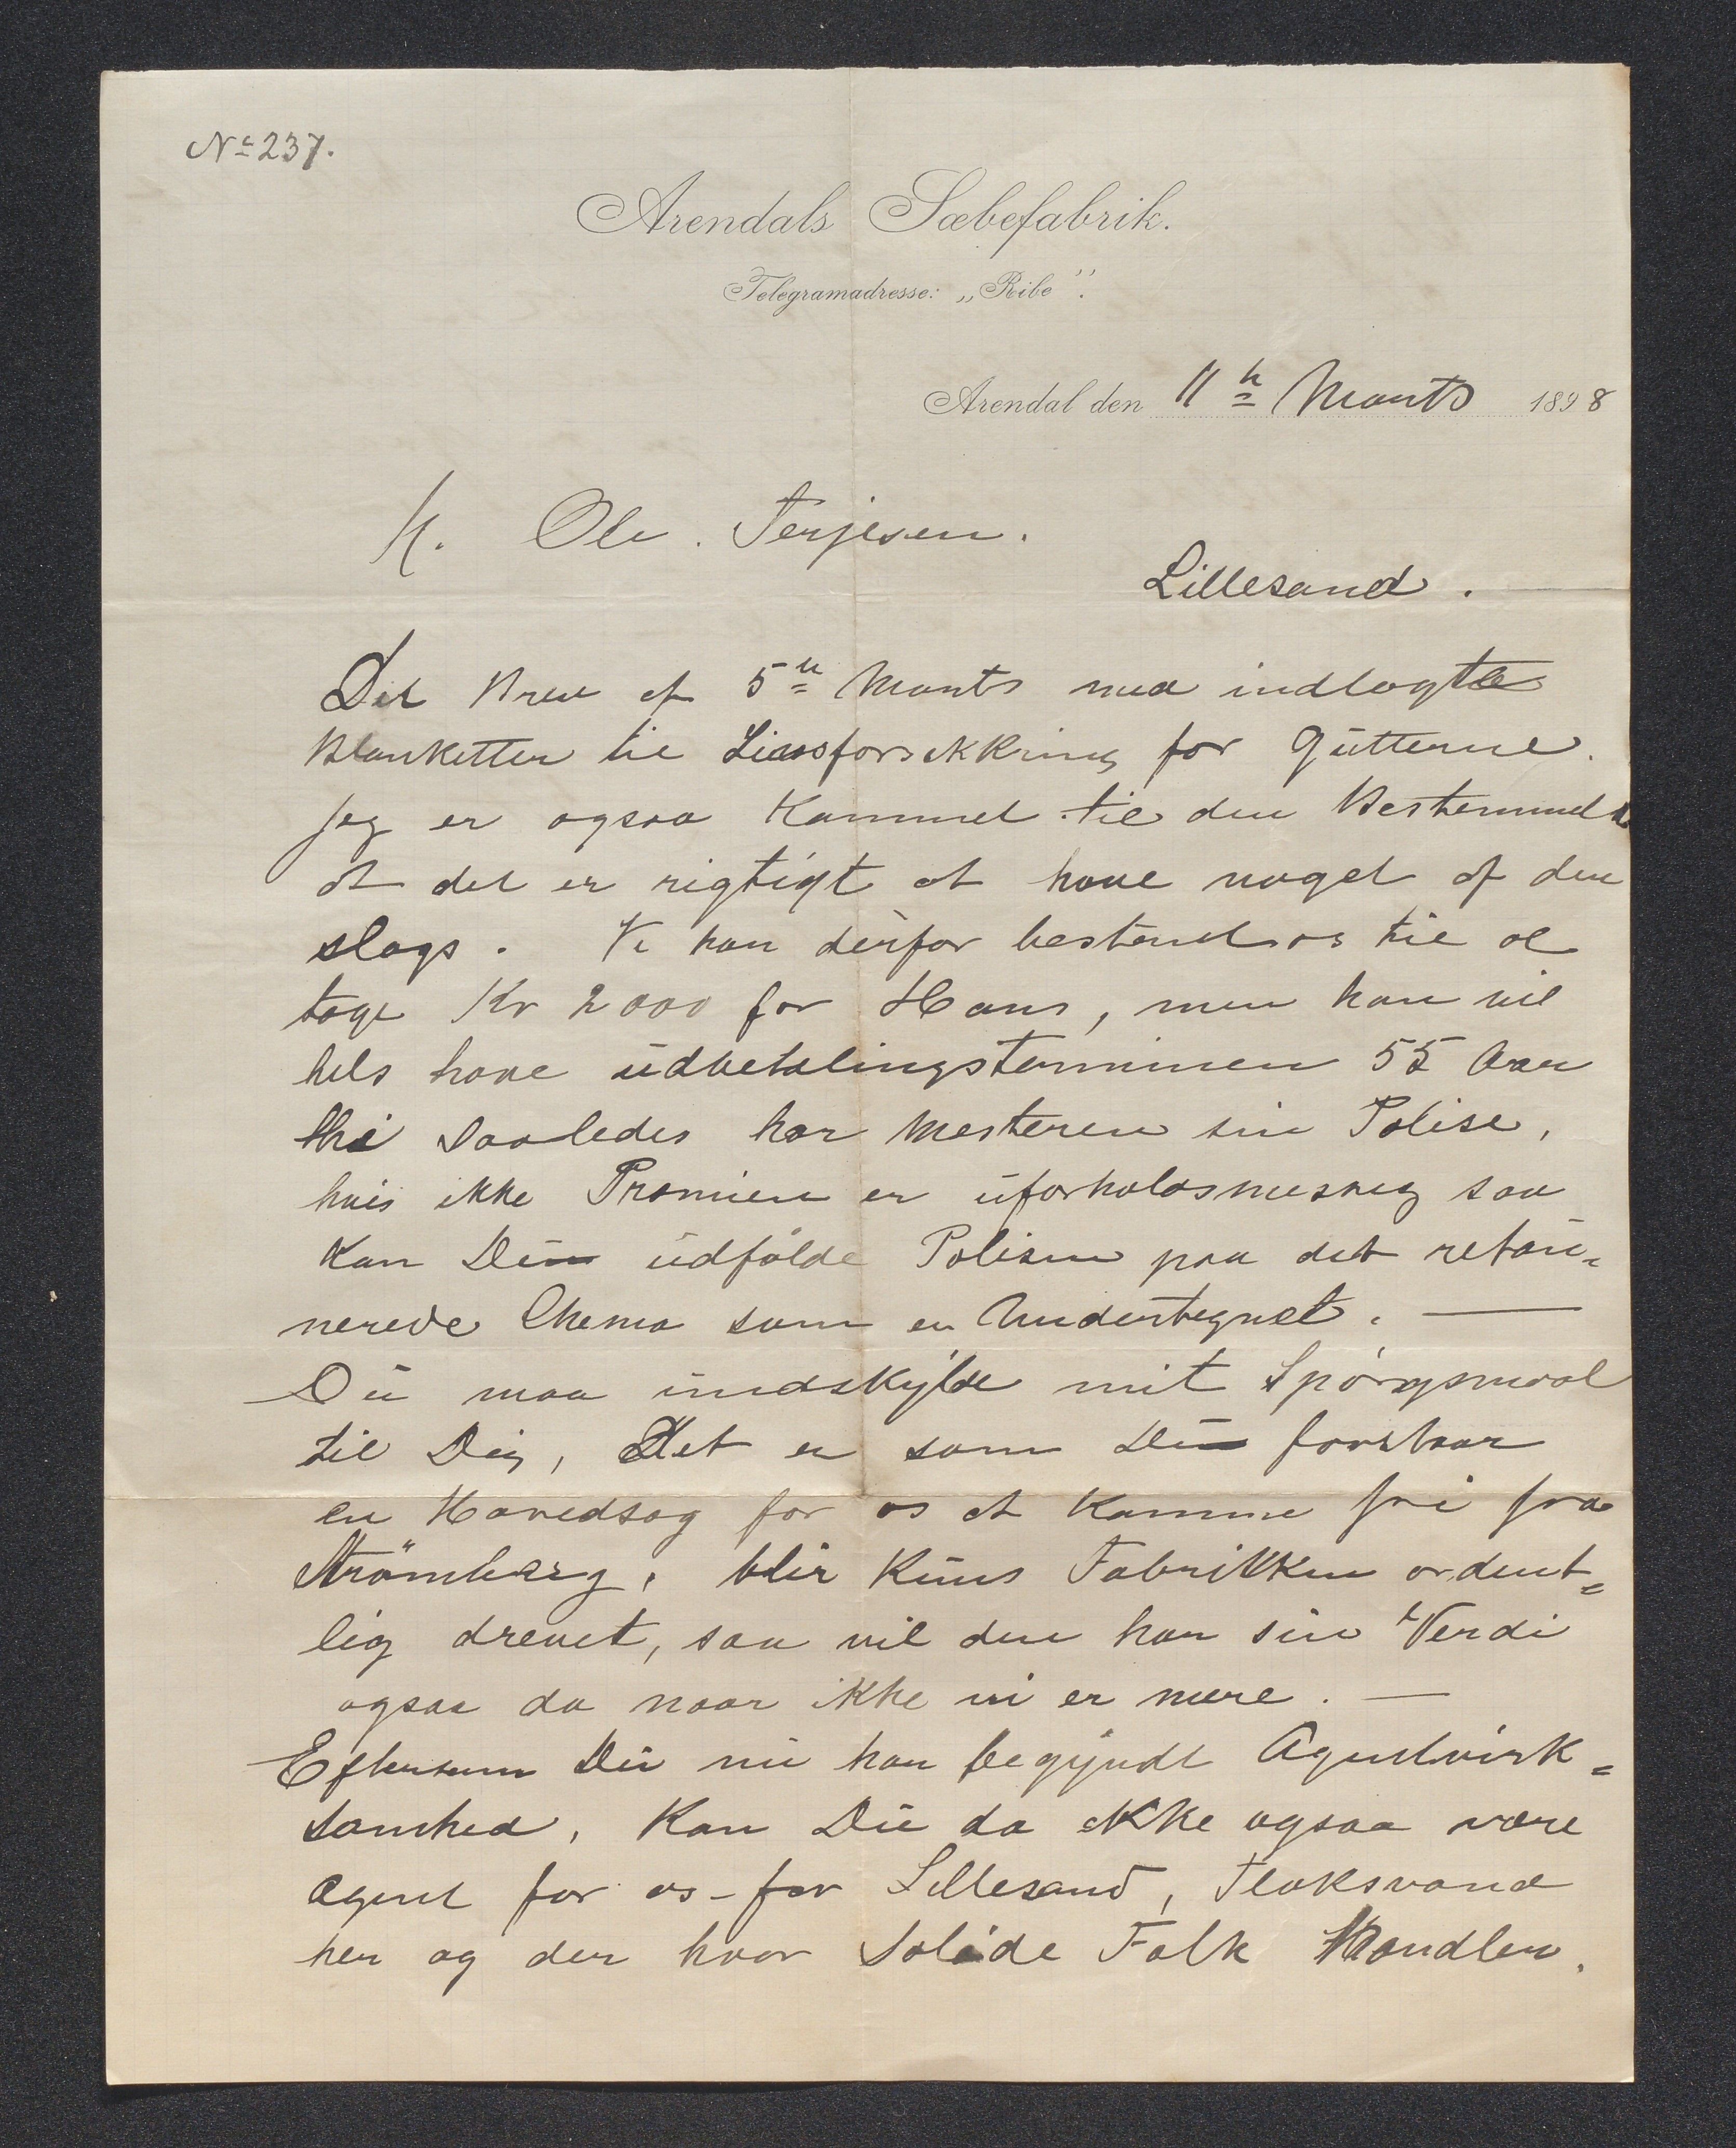 No 237.
Arendals Sæbefabrik.
Telegramadresse: „Ribe".
Arendal den 11te Marts 1898
H. Ole. Terjesen.
Lillesand.
Dit Brev af 5te Marts med indlagte
Blanketter til Livsforsikkring for Gutterne.
Jeg er ogsaa kommet til den Bestemmelse
at det er rigtigt at have noget af den
slags. Vi har derfor bestemt os til at
tage Kr 2000 for Hans, men han vil
hels have udbetalingsterminen 55 Aar
thi saaledes har Mesteren sin Polise,
hvis ikke Premien er uforholdsmessig saa
kan Du udfylde Polisen paa det retour=
nerede Skema som er Undertegnet. —
Du maa undskylde mit Spörgsmaal
til Dig, Det er som Du forstaar
en Hovedsag for os at komme fri fra
Strömberg, blir kuns Fabrikken ordent=
lig drevet, saa vil den har sin Verdi
ogsaa da naar ikke vi er mere. —
Eftersom Du nu har begyndt Agentvirk=
somhed, kan Du da ikke ogsaa være
Agent for os - for Lillesand,
her og der hvor solide Folk Handler.